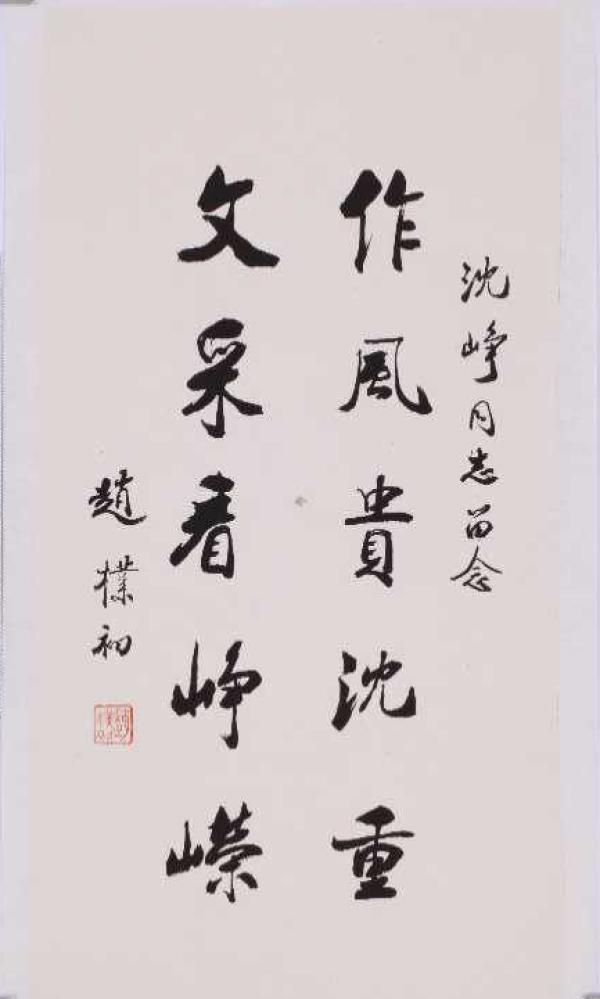 沈峥同志留念
作風貴沈重
文采看峥嶸
趙樸初